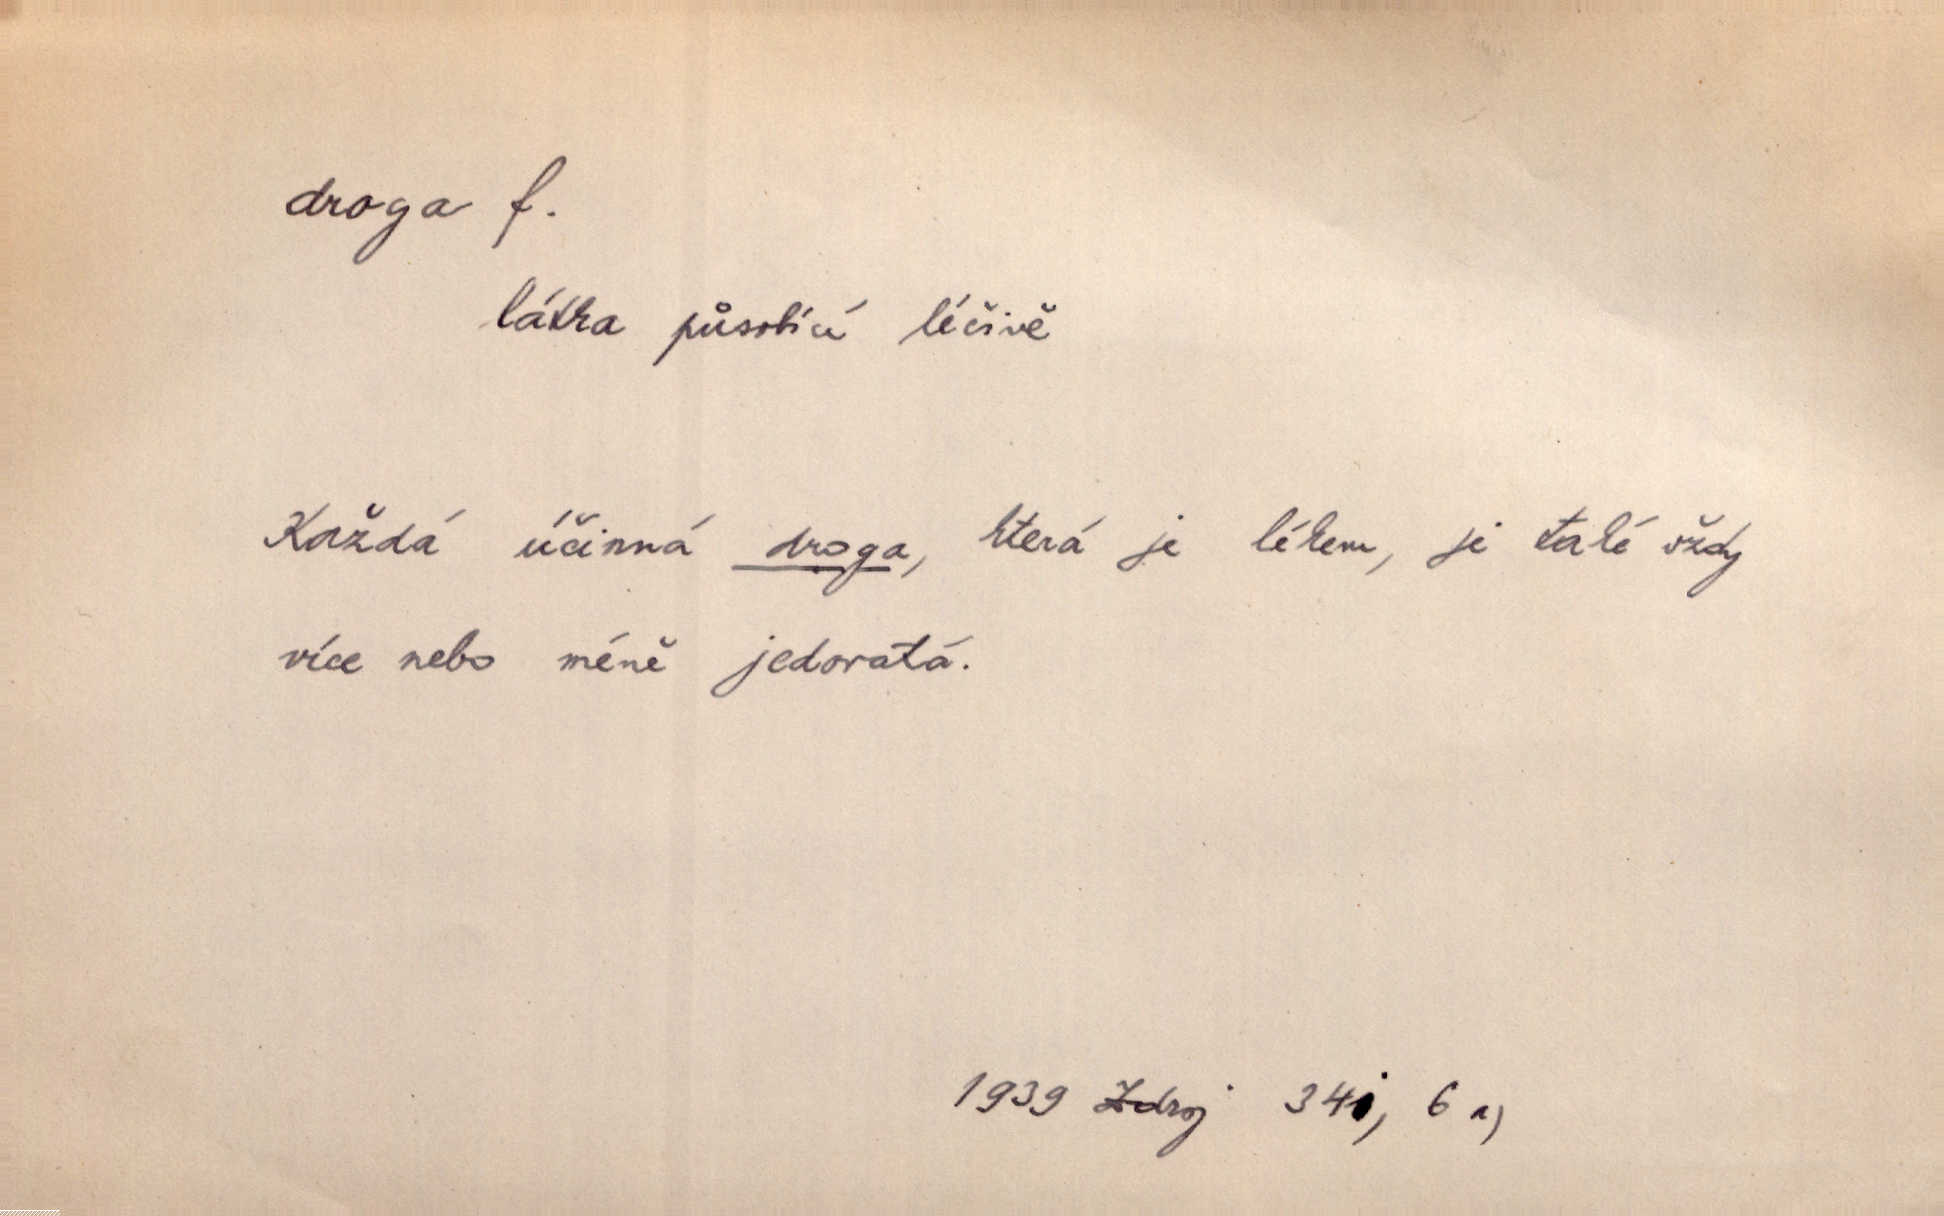 droga f.
látka působící léčivě
Každá účinná droga, která je lékem, je také vždy
více nebo méně jedovatá.
1939 Zdroj 6 a)